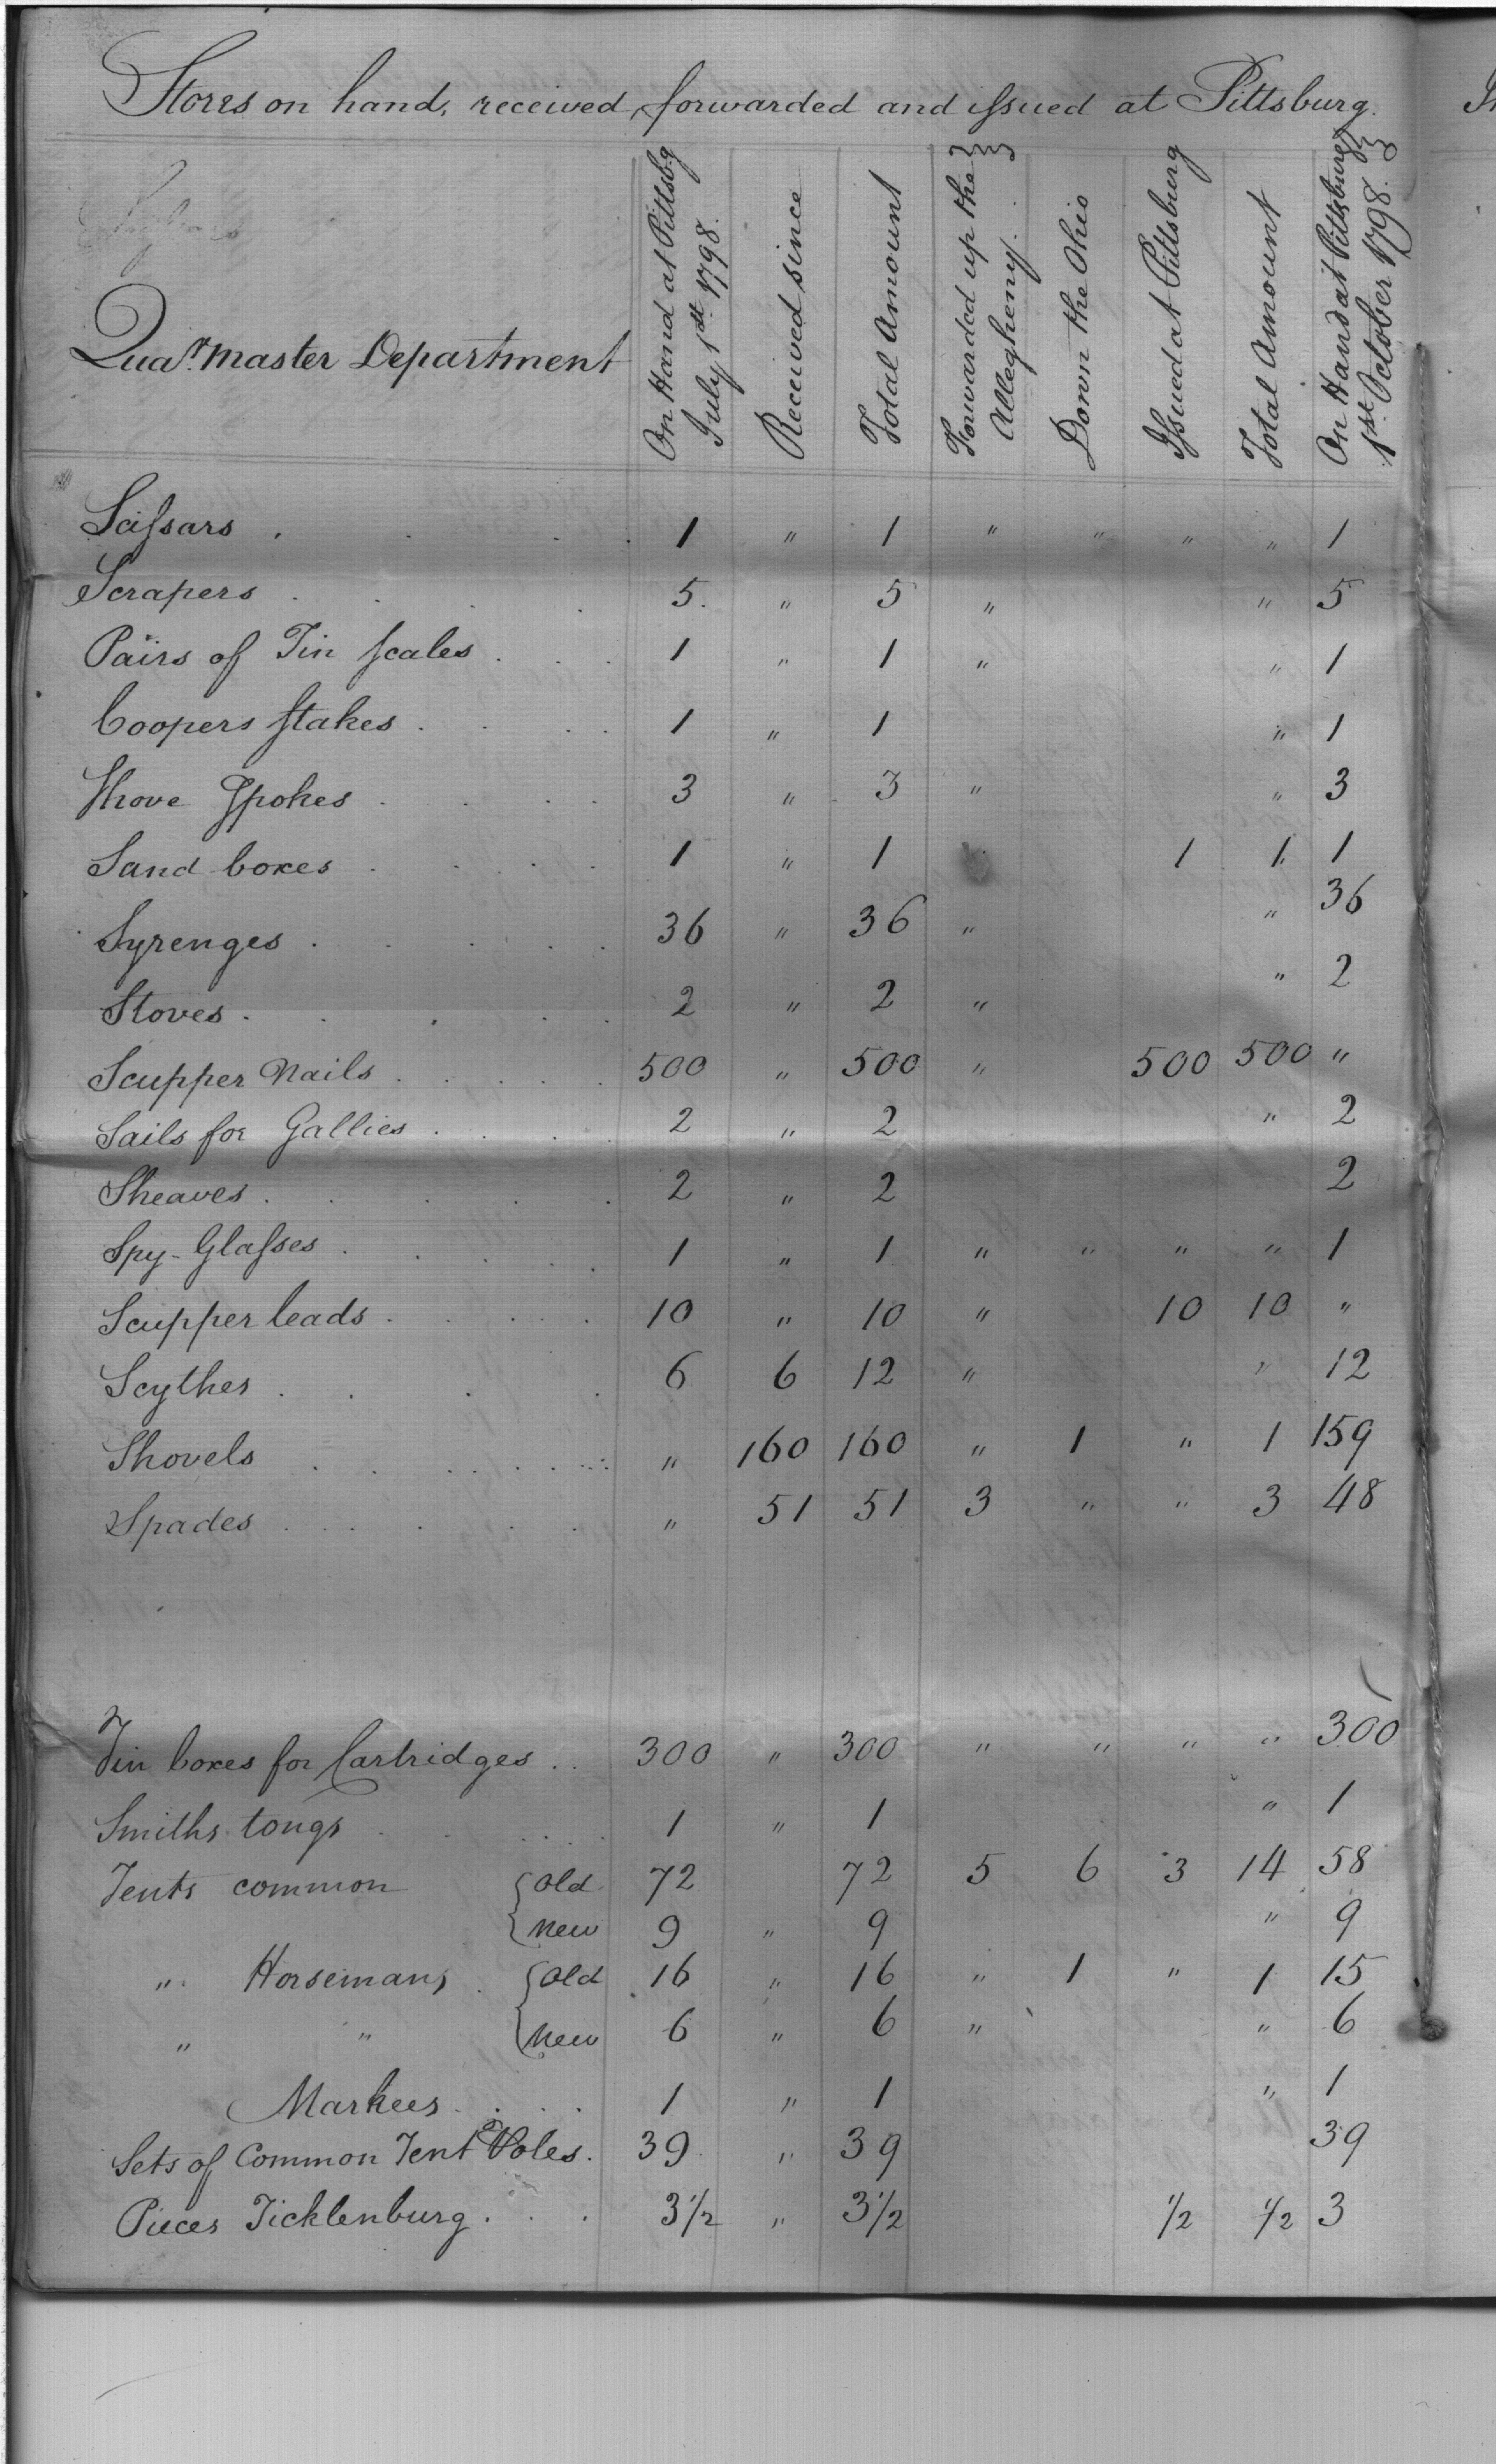 Stores on hand, received, forwarded and issued at Pittsburg.
Quar. master Department
On Hand at Pittsb.g July 1st. 1798.
Received since
Total Amount
Forwarded up the Allegheny.
Down the Ohio
Issued at Pittsburg
Total Amount
On Hand at Pittsburg 1st October 1798.
Scissars . 1 " 1 " " " " 1
Scrapers . 5. " 5 " " 5
Pairs of Tin scales . 1 " 1 " " 1
Coopers stakes . 1 " 1 " 1
Shove Spokes . 3 " 3 " " 3
Sand boxes . 1 " 1 1 1. 1
Syrenges . 36 " 36 " " 36
Stoves . 2 " 2 " " 2
Scupper Nails . 500 " 500 " 500 500 "
Sails for Gallies . 2 " 2 " 2
Sheaves . 2 " 2 2
Spy-Glasses . 1 " 1 " " " " 1
Scupper leads . 10 " 10 " 10 10 "
Scythes . 6 6 12 " " 12
Shovels . " 160 160 " 1 " 1 159
Spades . " 51 51 3 " " 3 48
Tin boxes for Cartridges . . 300 " 300 " " " " 300
Smiths tongs . 1 " 1 " 1
Tents common { Old 72 72 5 6 3 14 58
{ New 9 " 9 " 9
" Horsemans . { Old 16 " 16 " 1 " 1 15
" " { New 6 " 6 " " 6
Markees . 1 " 1 " 1
Sets of Common Tent Poles. 39 " 39 39
Pieces Ticklenburg . . . 3 1/2 " 3 1/2 1/2 1/2 3